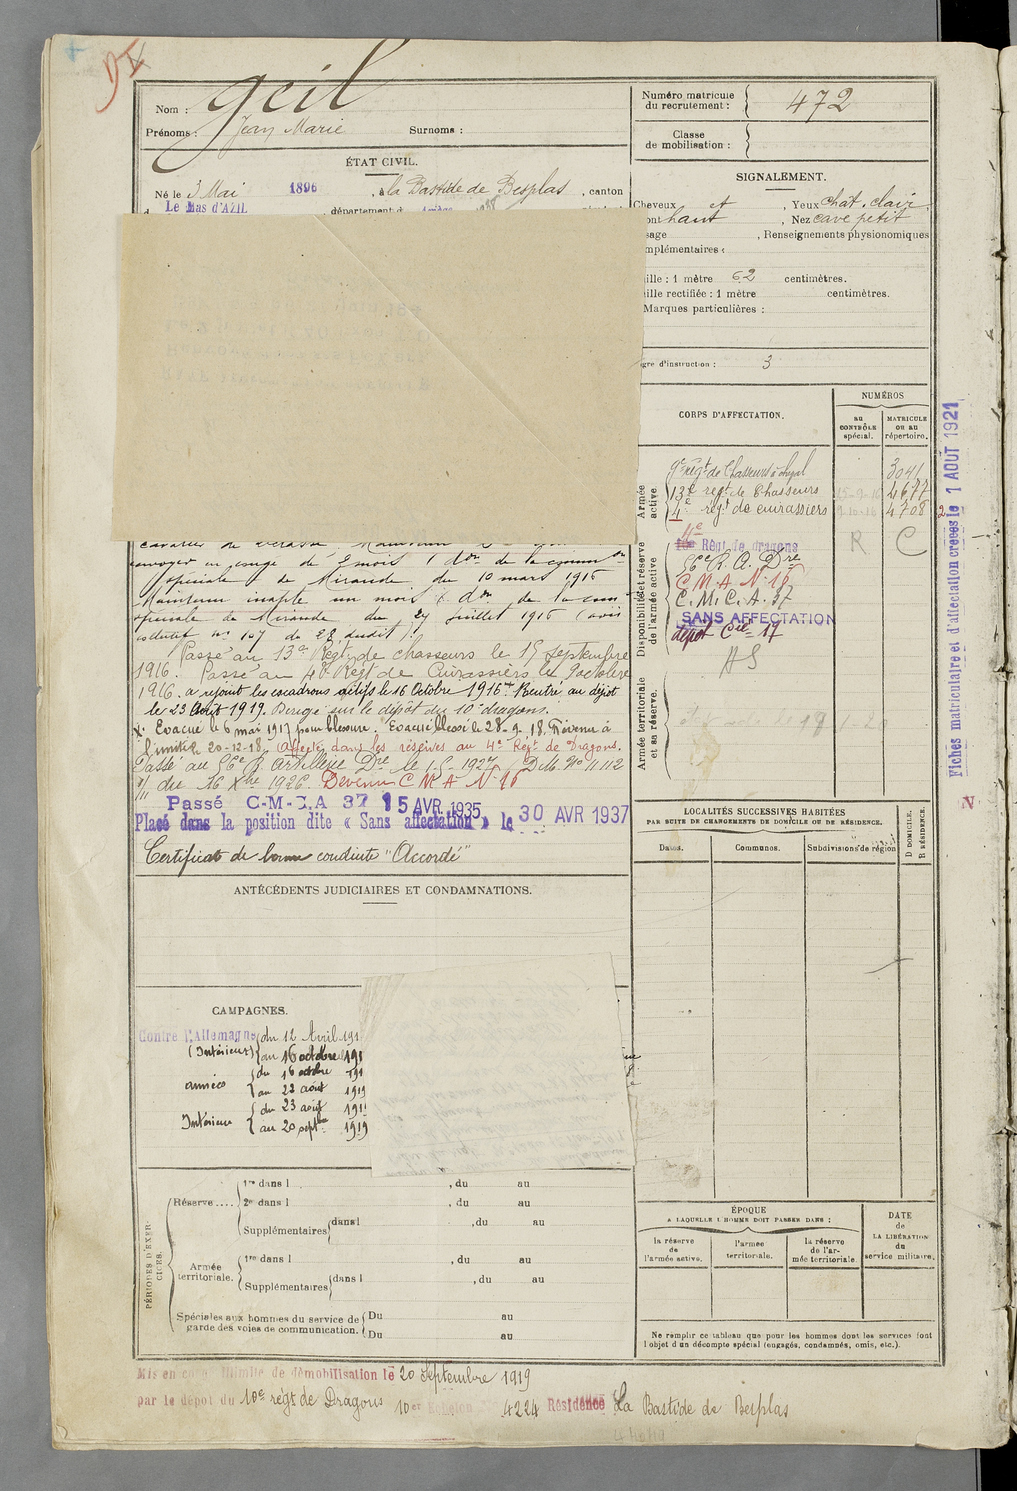 Nom : Geil
Prénoms : Jean Marie Surnoms :
Numéro matricule du recrutement : 472
Classe de mobilisation :
ÉTAT CIVIL.
Né le 3 Mai 1896, à la Bastide de Besplas, canton
Le Mas d'AZIL, département d
SIGNALEMENT.
Cheveux , Yeux chat. clair
ont haut , Nez cave petit
sage , Renseignements physionomiques
mplémentaires :
ille : 1 mètre 62 centimètres.
ille rectifiée : 1 mètre centimètres.
Marques particulières :
gré d'instruction : 3
CORPS D'AFFECTATION.
NUMÉROS
au CONTRÔLE spécial.
MATRICULE OU AU répertoire.
Armée active.
9e régt de Chasseurs à cheval 3041
13e régt de Chasseurs 4677
4e régt de cuirassiers 4708
Disponibilité et réserve de l'armée active
4e Régt de dragons R C
56e R. A. Dre
C M A N° 16
C. M. C. A. 37
SANS AFFECTATION
dépôt Cie 17
Armée territoriale et sa réserve.
Fiches matriculaire et d'affectation créées le 1 AOUT 1921
spéciale de Mirande du 10 mars 1916
Maintenu inapte un mois
spéciale de Mirande du 24 juillet 1916 (avis
Passé au 13e Régt de chasseurs le 15 septembre
1916. Passé au 4e Régt de Cuirassiers le 9 octobre
1916. a rejoint les escadrons actifs le 16 Octobre 1916. Rentré au dépôt
le 23 Août 1919. Dirigé sur le dépôt du 10e dragons.
Evacué le 6 mai 1917 pour blessure. Evacué blessé le 28-9-18. Revenu à
l'unité le 20-12-18. Affecté dans les réserves au 4e Régt de Dragons.
Passé au 56e R. Artillerie Dre le 1-5-1927 D.M. N° 11112
du 16 Xbre 1926. Devenu C M A N° 16
Passé C-M-C.A 37 15 AVR. 1935
Placé dans la position dite « Sans affectation » le 30 AVR 1937
Certificat de bonne conduite "Accordé"
ANTÉCÉDENTS JUDICIAIRES ET CONDAMNATIONS.
LOCALITÉS SUCCESSIVES HABITÉES
PAR SUITE DE CHANGEMENTS DE DOMICILE OU DE RÉSIDENCE.
Dates. Communes. Subdivisions de région D DOMICILE. R RÉSIDENCE.
CAMPAGNES.
Contre l'Allemagne du 12 Avril 191
(Intérieur) au 16 octobre 191
armées du 16 octobre 191
au 22 août 1919
Intérieur du 23 août 191
au 20 septbre 1919
PÉRIODES D'EXERCICES.
Réserve.... 1re dans l , du au
2e dans l , du au
Supplémentaires dans l , du au
Armée territoriale. 1re dans l , du au
Supplémentaires dans l , du au
Spéciales aux hommes du service de garde des voies de communication. Du au
Du au
ÉPOQUE
A LAQUELLE L'HOMME DOIT PASSER DANS :
la réserve de l'armée active.
l'armée territoriale.
la réserve de l'armée territoriale
DATE de LA LIBÉRATION du service militaire.
Ne remplir ce tableau que pour les hommes dont les services font
l'objet d'un décompte spécial (engagés, condamnés, omis, etc.).
Mis en congé illimité de démobilisation le 20 Septembre 1919
par le dépôt du 10e régt de Dragons 10er Echelon 4224 Résidence La Bastide de Besplas